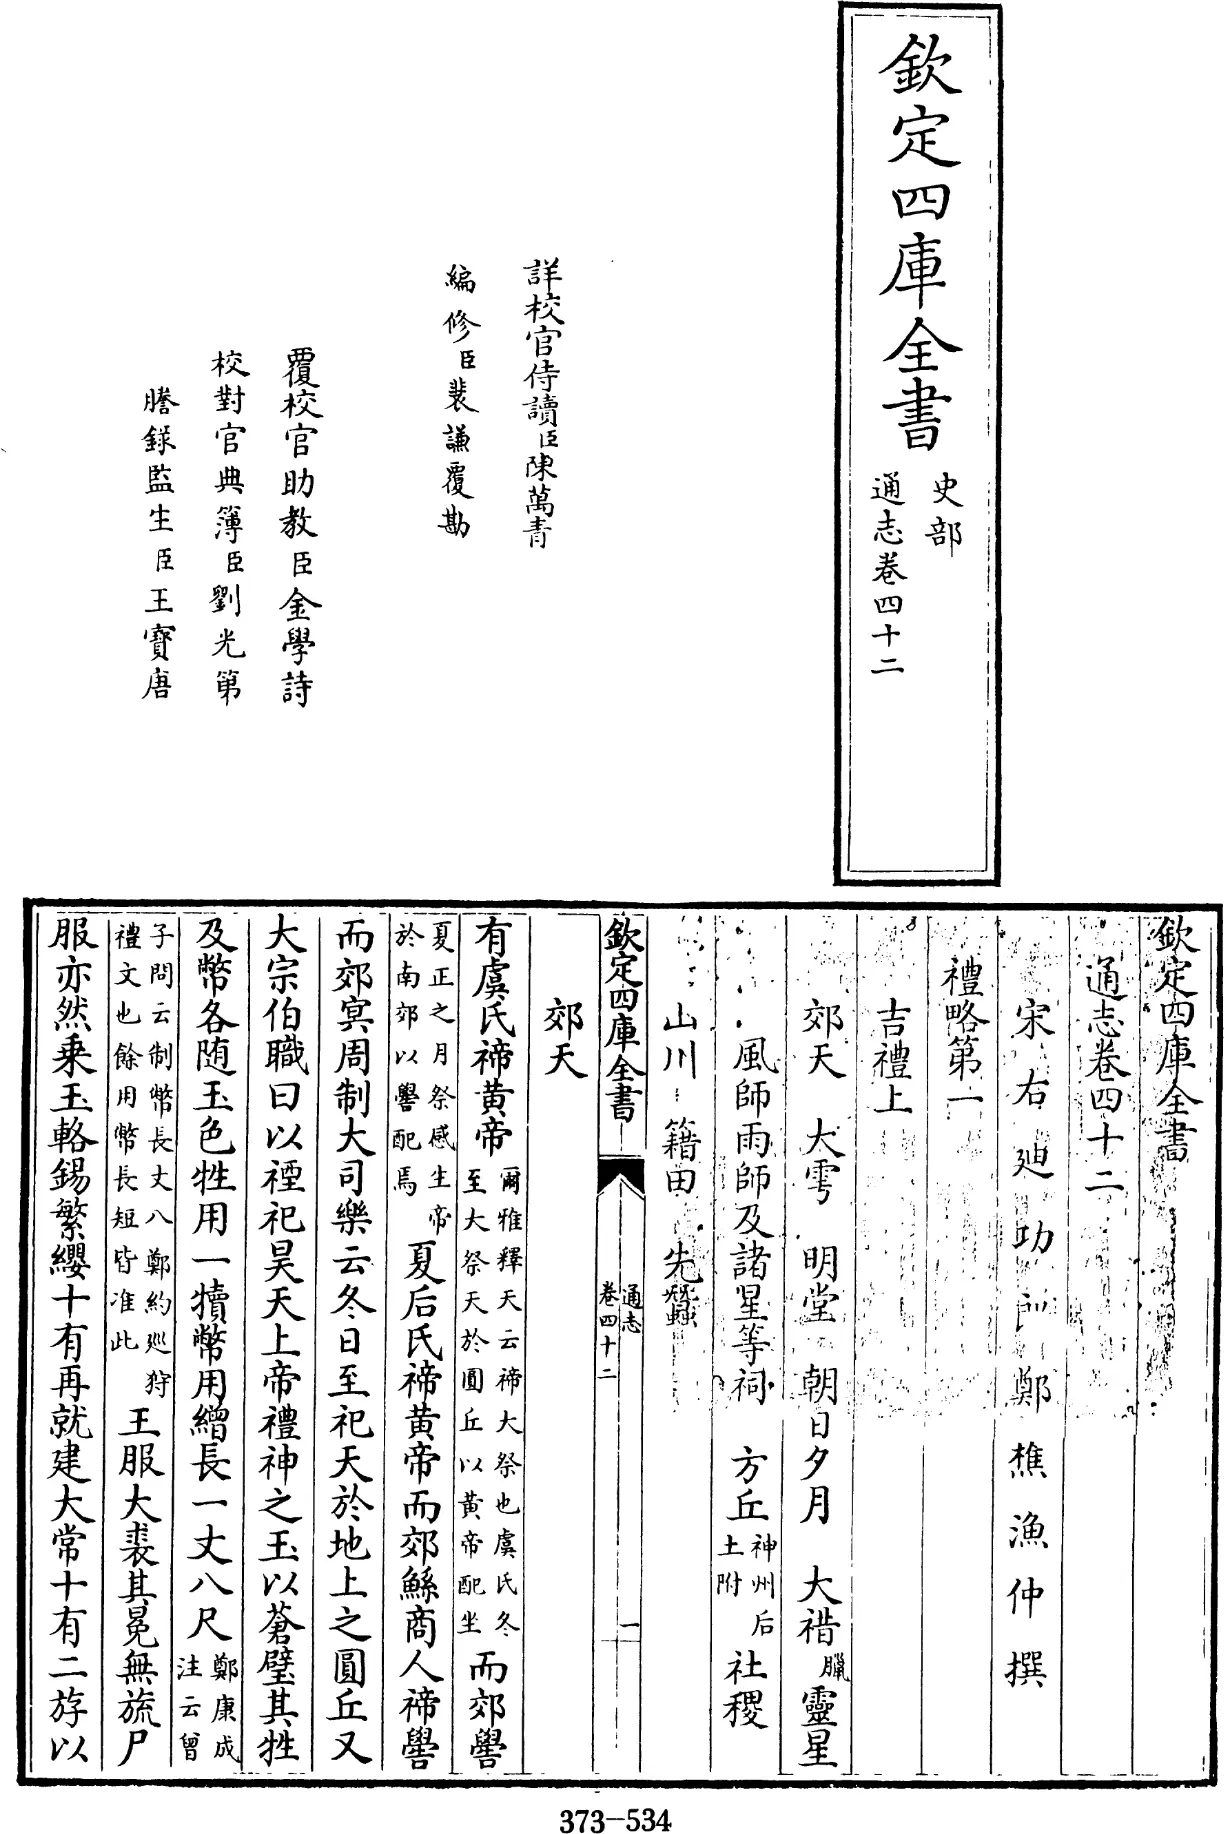 欽定四庫全書
史部
通志卷四十二
詳校官侍讀臣陳萬青
編修臣裴謙覆勘
覆校官助教臣金學詩
校對官典簿臣劉光第
謄錄監生臣王寶唐
欽定四庫全書
通志卷四十二
宋右迪功郎鄭樵漁仲撰
禮略第一
吉禮上
郊天 大雩 明堂 朝日夕月 大禇臘靈星
風師雨師及諸星等祠 方丘神州后土附 社稷
山川 籍田 先蠶
欽定四庫全書
通志
卷四十二
一
郊天
有虞氏禘黄帝爾雅釋天云禘大祭也虞氏冬至大祭天於圓丘以黄帝配坐而郊嚳
夏正之月祭感生帝於南郊以嚳配焉夏后氏禘黄帝而郊鯀商人禘嚳
而郊冥周制大司樂云冬日至祀天於地上之圓丘又
大宗伯職曰以禋祀昊天上帝禮神之玉以蒼璧其牲
及幣各随玉色牲用一犢幣用繒長一丈八尺鄭康成注云曾
子問云制幣長丈八鄭約巡狩禮文也餘用幣長短皆准此王服大裘其冕無旒尸
服亦然乗玉輅錫繁纓十有再就建大常十有二斿以
373-534